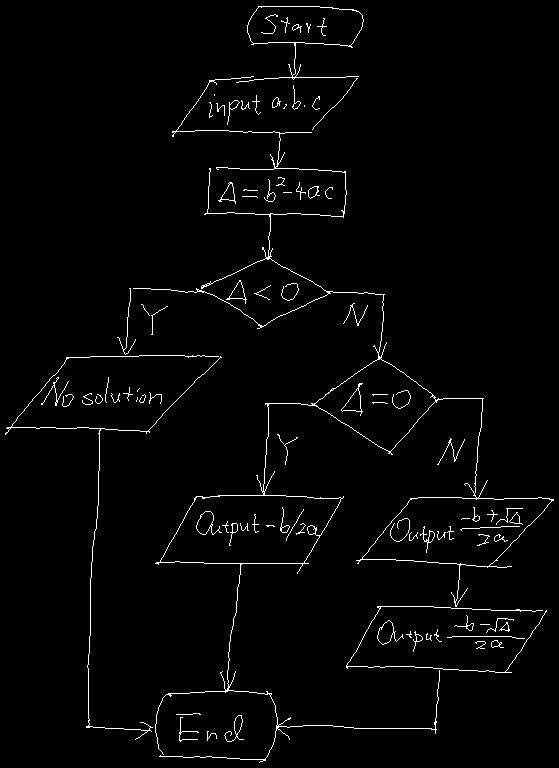 Start
input a,b.c
Δ=b²-4ac
Δ<0
Y
N
No solution
Δ=0
Y
N
Output-b/2a
Output (-b+√Δ)/2a
Output (-b-√Δ)/2a
End